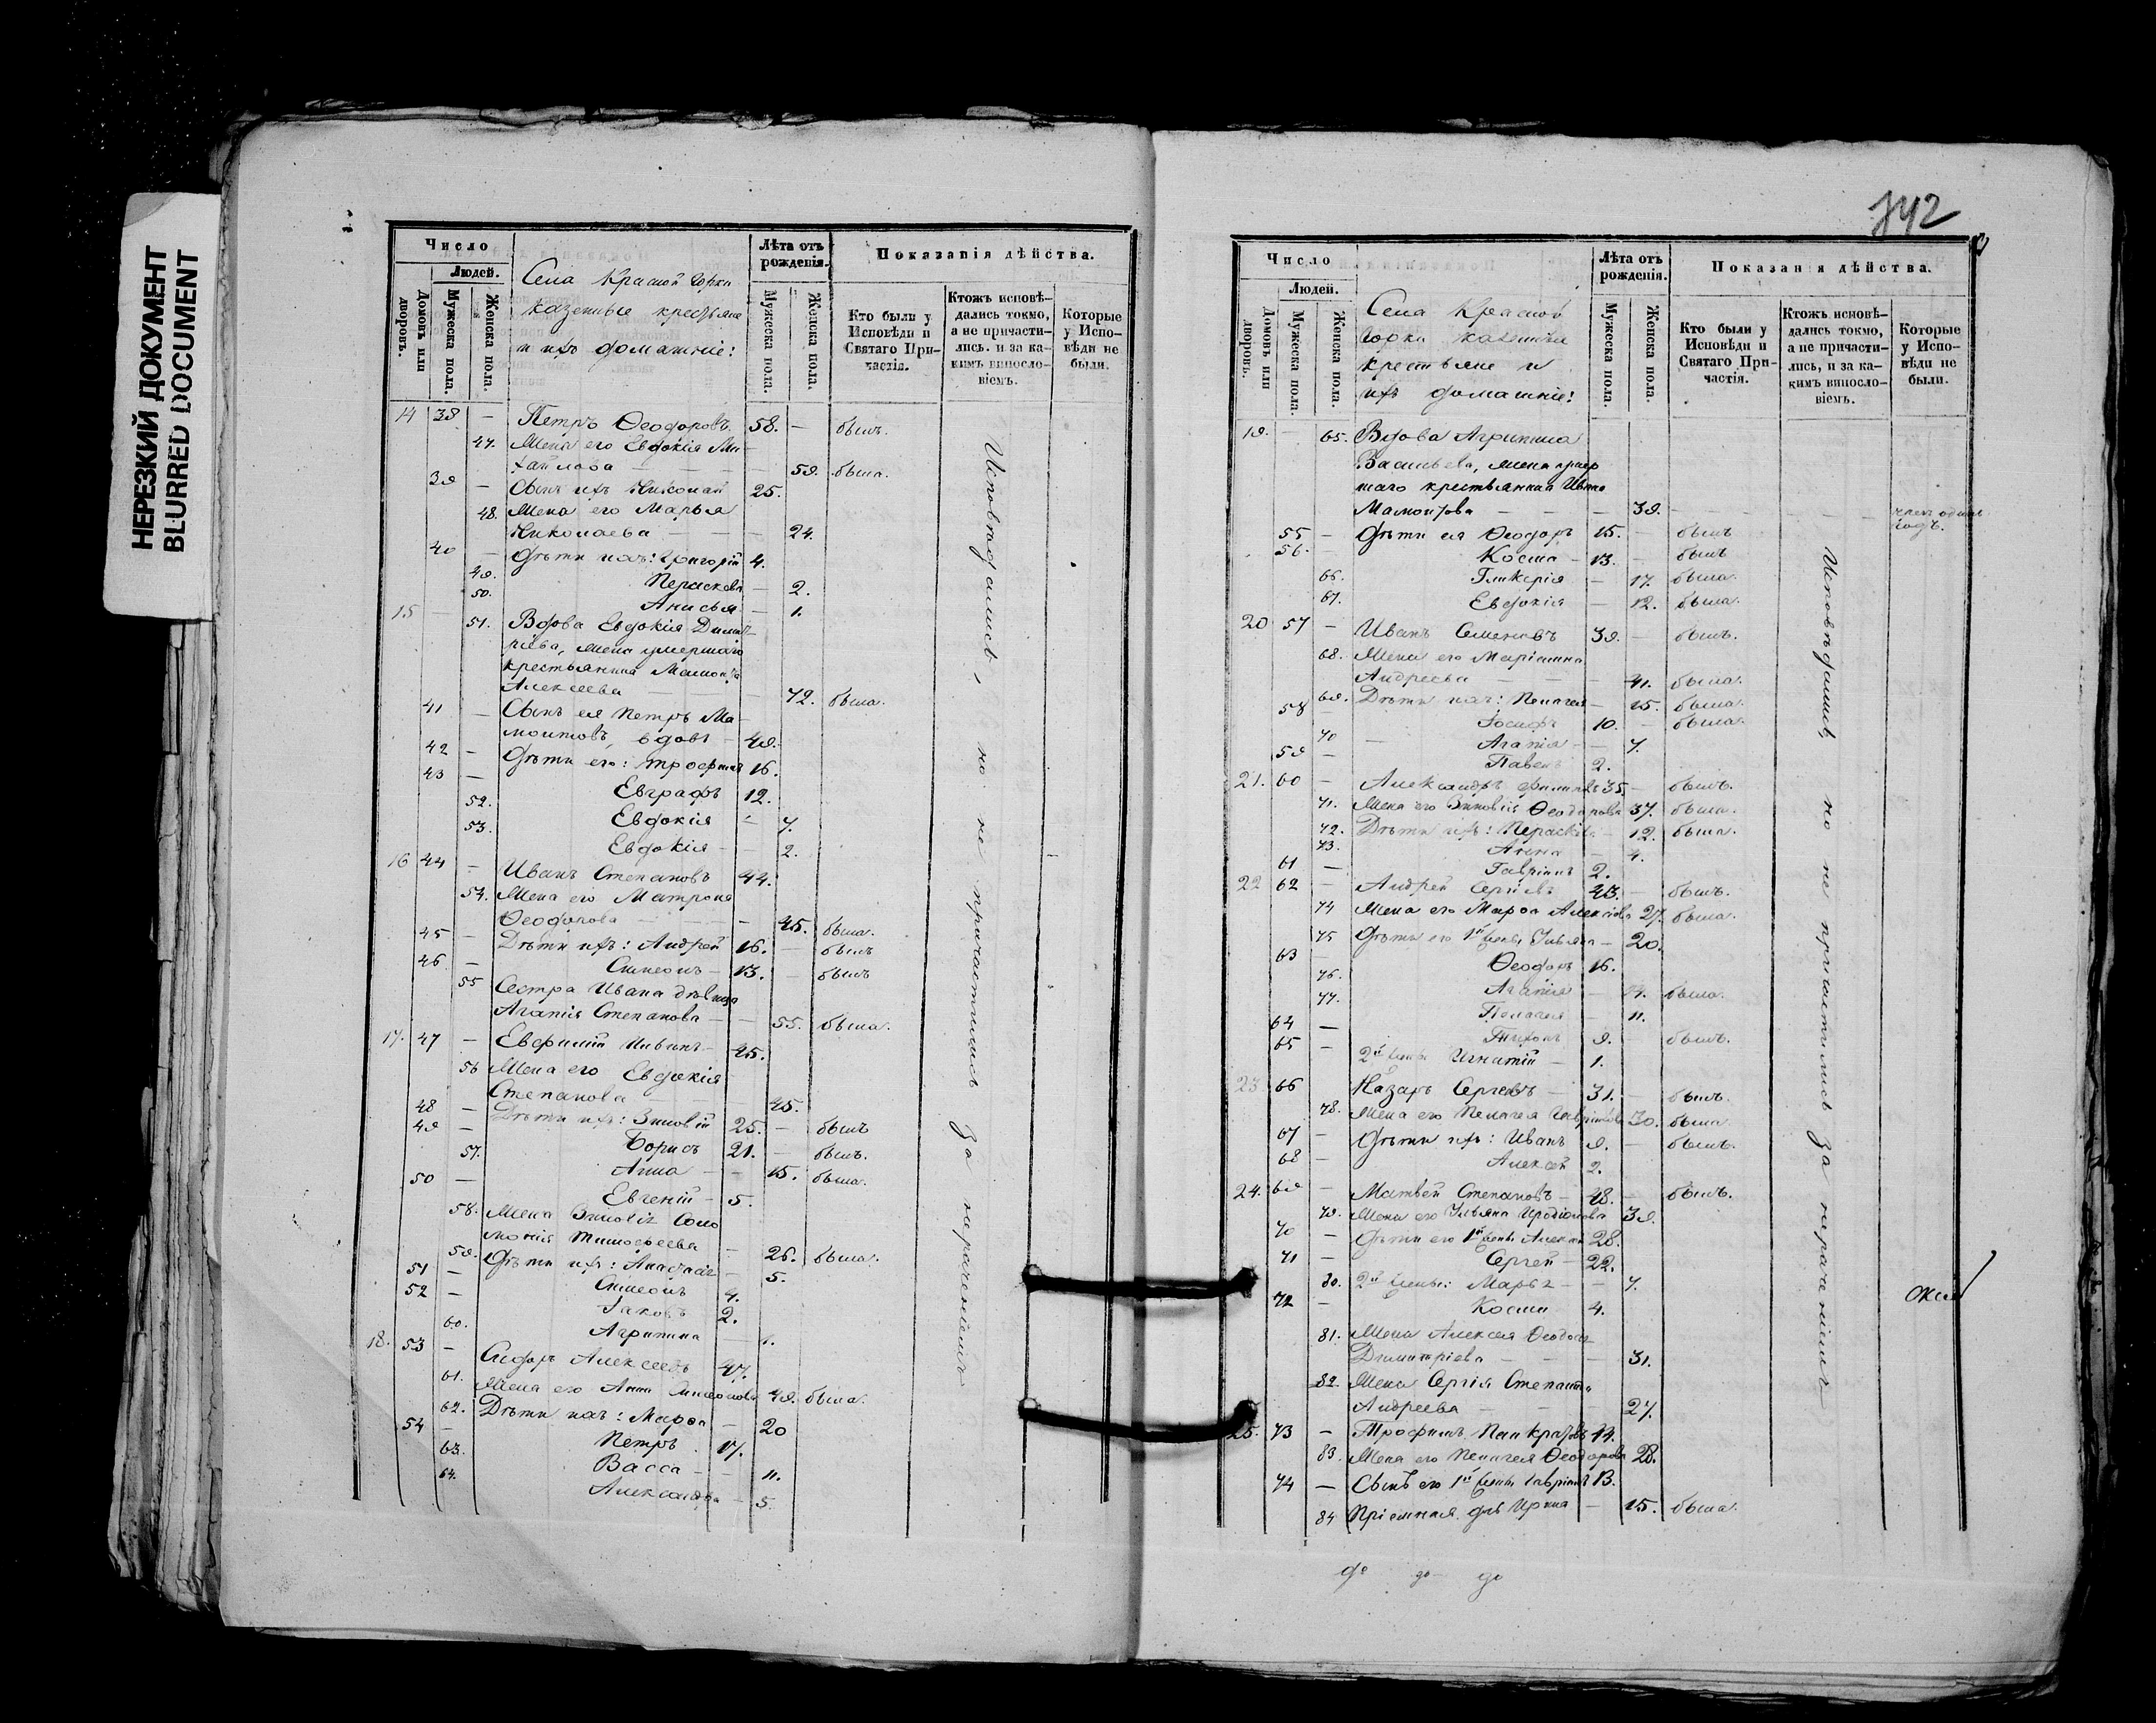 НЕРЕЗКИЙ ДОКУМЕНТ
BLURRED DOCUMENT
Число
Людей.
Домовъ или дворовъ.
Мужеска пола.
Женска пола.
Села Красной Горки
казенные крестьяне
и ихъ домашніе:
Лѣта отъ рожденія.
Мужеска пола.
Женска пола.
Показанія дѣйства.
Кто были у Исповѣди и Святаго Причастія.
Ктожъ исповѣдались токмо, а не причастились. и за какимъ винословіемъ.
Которые у Исповѣди не были.
14 38 — Петръ Ѳеодоровъ 58. — былъ.
47. Жена его Евдокія Ми-
хайлова — 59. была.
39 — Сынъ ихъ Николай 25.
48. Жена его Марья
Николаева — 24.
40 — Дѣти ихъ: Григорій 4.
49. Параскева — 2.
50. Анисья — 1.
15 — 51. Вдова Евдокія Димит-
ріева, жена умершаго
крестьянина Мамонта
Алексеева — 72. была.
41 — Сынъ ея Петръ Ма-
монтовъ, вдовъ — 49.
42 — Дѣти его: Трофимъ 16.
43 — Евграфъ 12.
52. Евдокія — 7.
53. Евдокія — 2.
16 44 — Иванъ Степановъ 44.
54. Жена его Матрона
Ѳеодорова — 45. была.
45 — Дѣти ихъ: Андрей 16. — былъ
46 — Симеонъ — 13. — былъ
55 Сестра Ивана дѣвица
Агапія Степанова — 55. была.
17. 47 — Евфимій 45.
56 Жена его Евдокія
Степанова — 45.
48 — Дѣти ихъ: Зиновій 25. — былъ
49 — Борисъ 21. — былъ.
57. Анна — 15. была.
50 — Евгеній — 5.
58. Жена Зиновія Соло
монія Тимофеева — 26. была.
59. Дѣти ихъ: Анастасія — 5.
51 — Симеонъ 4.
52 — Іаковъ 2.
60. Агрипина — 1.
18. 53 — Сидоръ Алексеевъ 47.
61. Жена его Анна Симеонова 49. была.
62. Дѣти ихъ: Марѳа — 20
54 — Петръ 17.
63. Васса — 11.
64. Александра — 5.
Исповѣдались, но не причастились за нераченіемъ
742
Число
Людей.
Домовъ или дворовъ.
Мужеска пола.
Женска пола.
Села Красной
Горки казенные
крестьяне и
ихъ домашніе:
Лѣта отъ рожденія.
Мужеска пола.
Женска пола.
Показанія дѣйства.
Кто были у Исповѣди и Святаго Причастія.
Ктожъ исповѣдались токмо, а не причастились, и за какимъ винословіемъ.
Которые у Исповѣди не были.
19. — 65. Вдова Агрипина
Васильева, жена умер
шаго крестьянина Ивана
Мамонтова — 39. одинъ годъ.
55 — Дѣти ея Ѳеодоръ 15. — былъ
56. Косма — 13. — былъ
66. Гликерія — 17. была.
67. Евдокія — 12. была.
20 57 — Иванъ Семеновъ 39. — былъ.
68. Жена его Маріамна
Андреева — 41. была.
69. Дѣти ихъ: Пелагея — 15. была.
58 — Іосифъ 10. — была.
70 — Агапія — 7.
59 — Павелъ 2.
21. 60 — Александръ 35. — былъ.
71. Жена его Зиновія Ѳеодорова 37. была.
72. Дѣти ихъ: Параскева — 12. была.
73. Анна — 4.
61 — Гавріилъ 2.
22 62 — Андрей Сергіевъ 43. — былъ.
74 Жена его Марѳа Алексіева 27. была.
75 Дѣти его 1й жены Ульяна — 20.
63 — Ѳеодоръ 16.
76. Агапія — была.
77. Пелагея — 11.
64 — Тихонъ 9. — былъ.
65 — 2й жены Игнатій — 1.
23 66 Назаръ Сергіевъ — 31. — былъ.
78. Жена его Пелагея Гавріилова 30. была.
67 — Дѣти ихъ: Иванъ 9. — былъ.
68 — Алексей 2.
24. 69 — Матвей Степановъ — 48. — былъ.
79. Жена его Ульяна Иродіонова 39.
70 — Дѣти его 1й жены Алексей 28.
71 — Сергей — 22.
80. 2й жены: Марья — 7.
72 — Косма 4.
81. Жена Алексея Ѳеодосья
Димитріева — 31.
82. Жена Сергія Степанида
Андреева — 27.
25. 73 — Трофимъ Панкратовъ
83. Жена его Пелагея Ѳеодорова 28.
74 — Сынъ его 1й жены Гавріилъ 13.
84 Пріемная Ирина — 15. была.
Исповѣдались, но не причастились за нераченіемъ
до до до